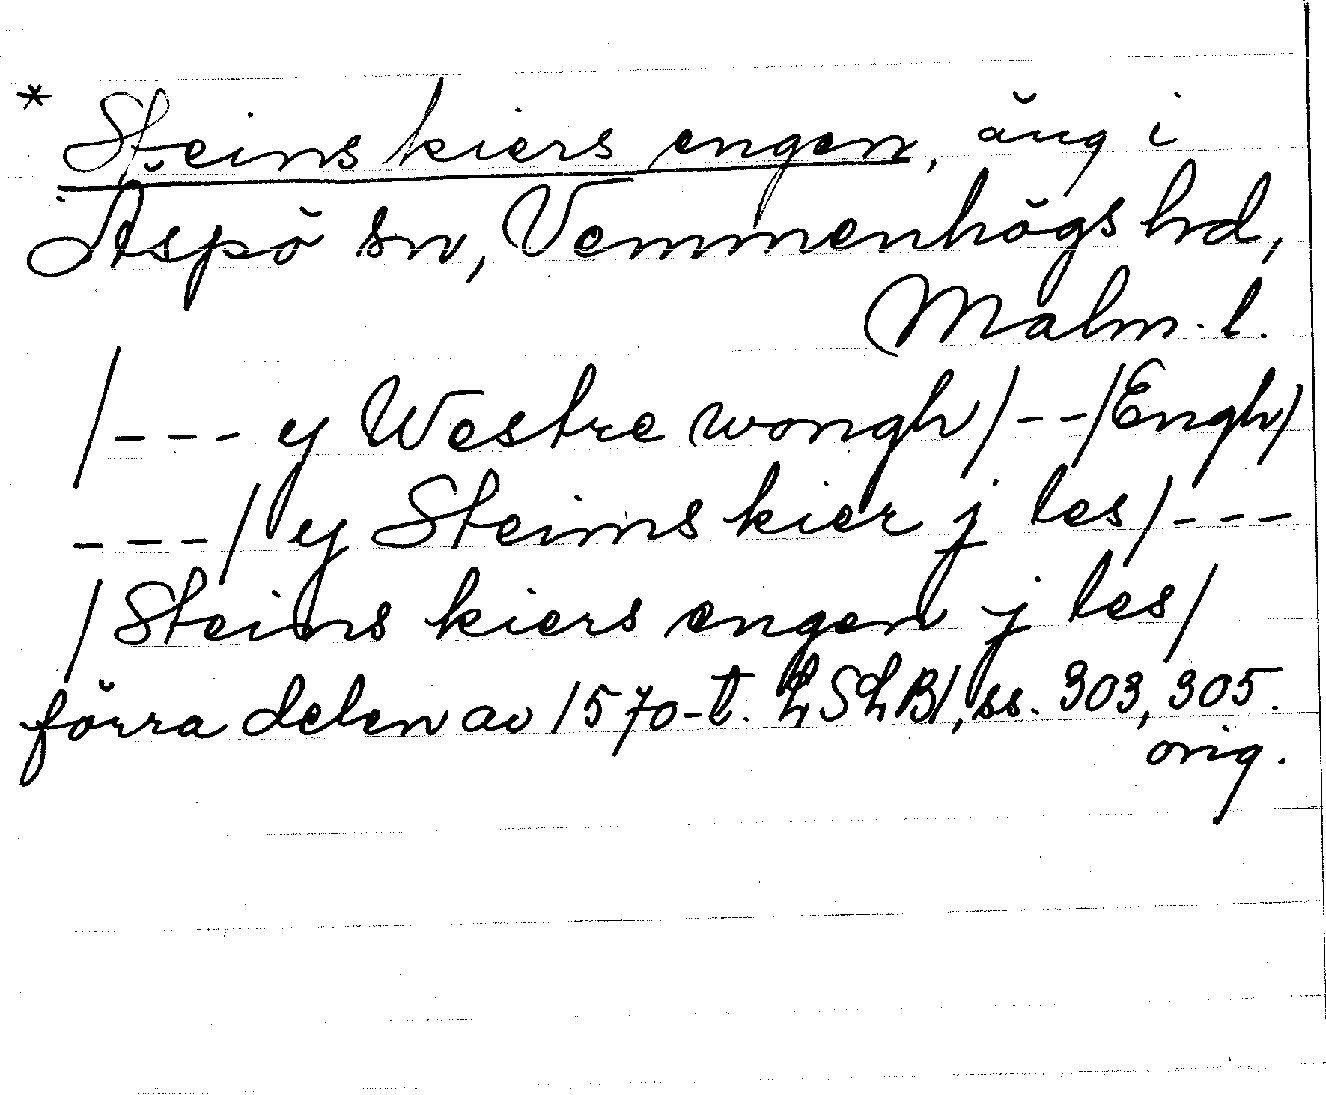 * Steins kiers engen, äng i
Aspö sn, Vemmenhögs hd,
Malm. l.
/--- y Westre wongh/--/Engh/
---/ y Steins kier j les/---
/Steins kiers engen j les/
förra delen av 1570-t. LSLB1, ss. 303, 305.
orig.